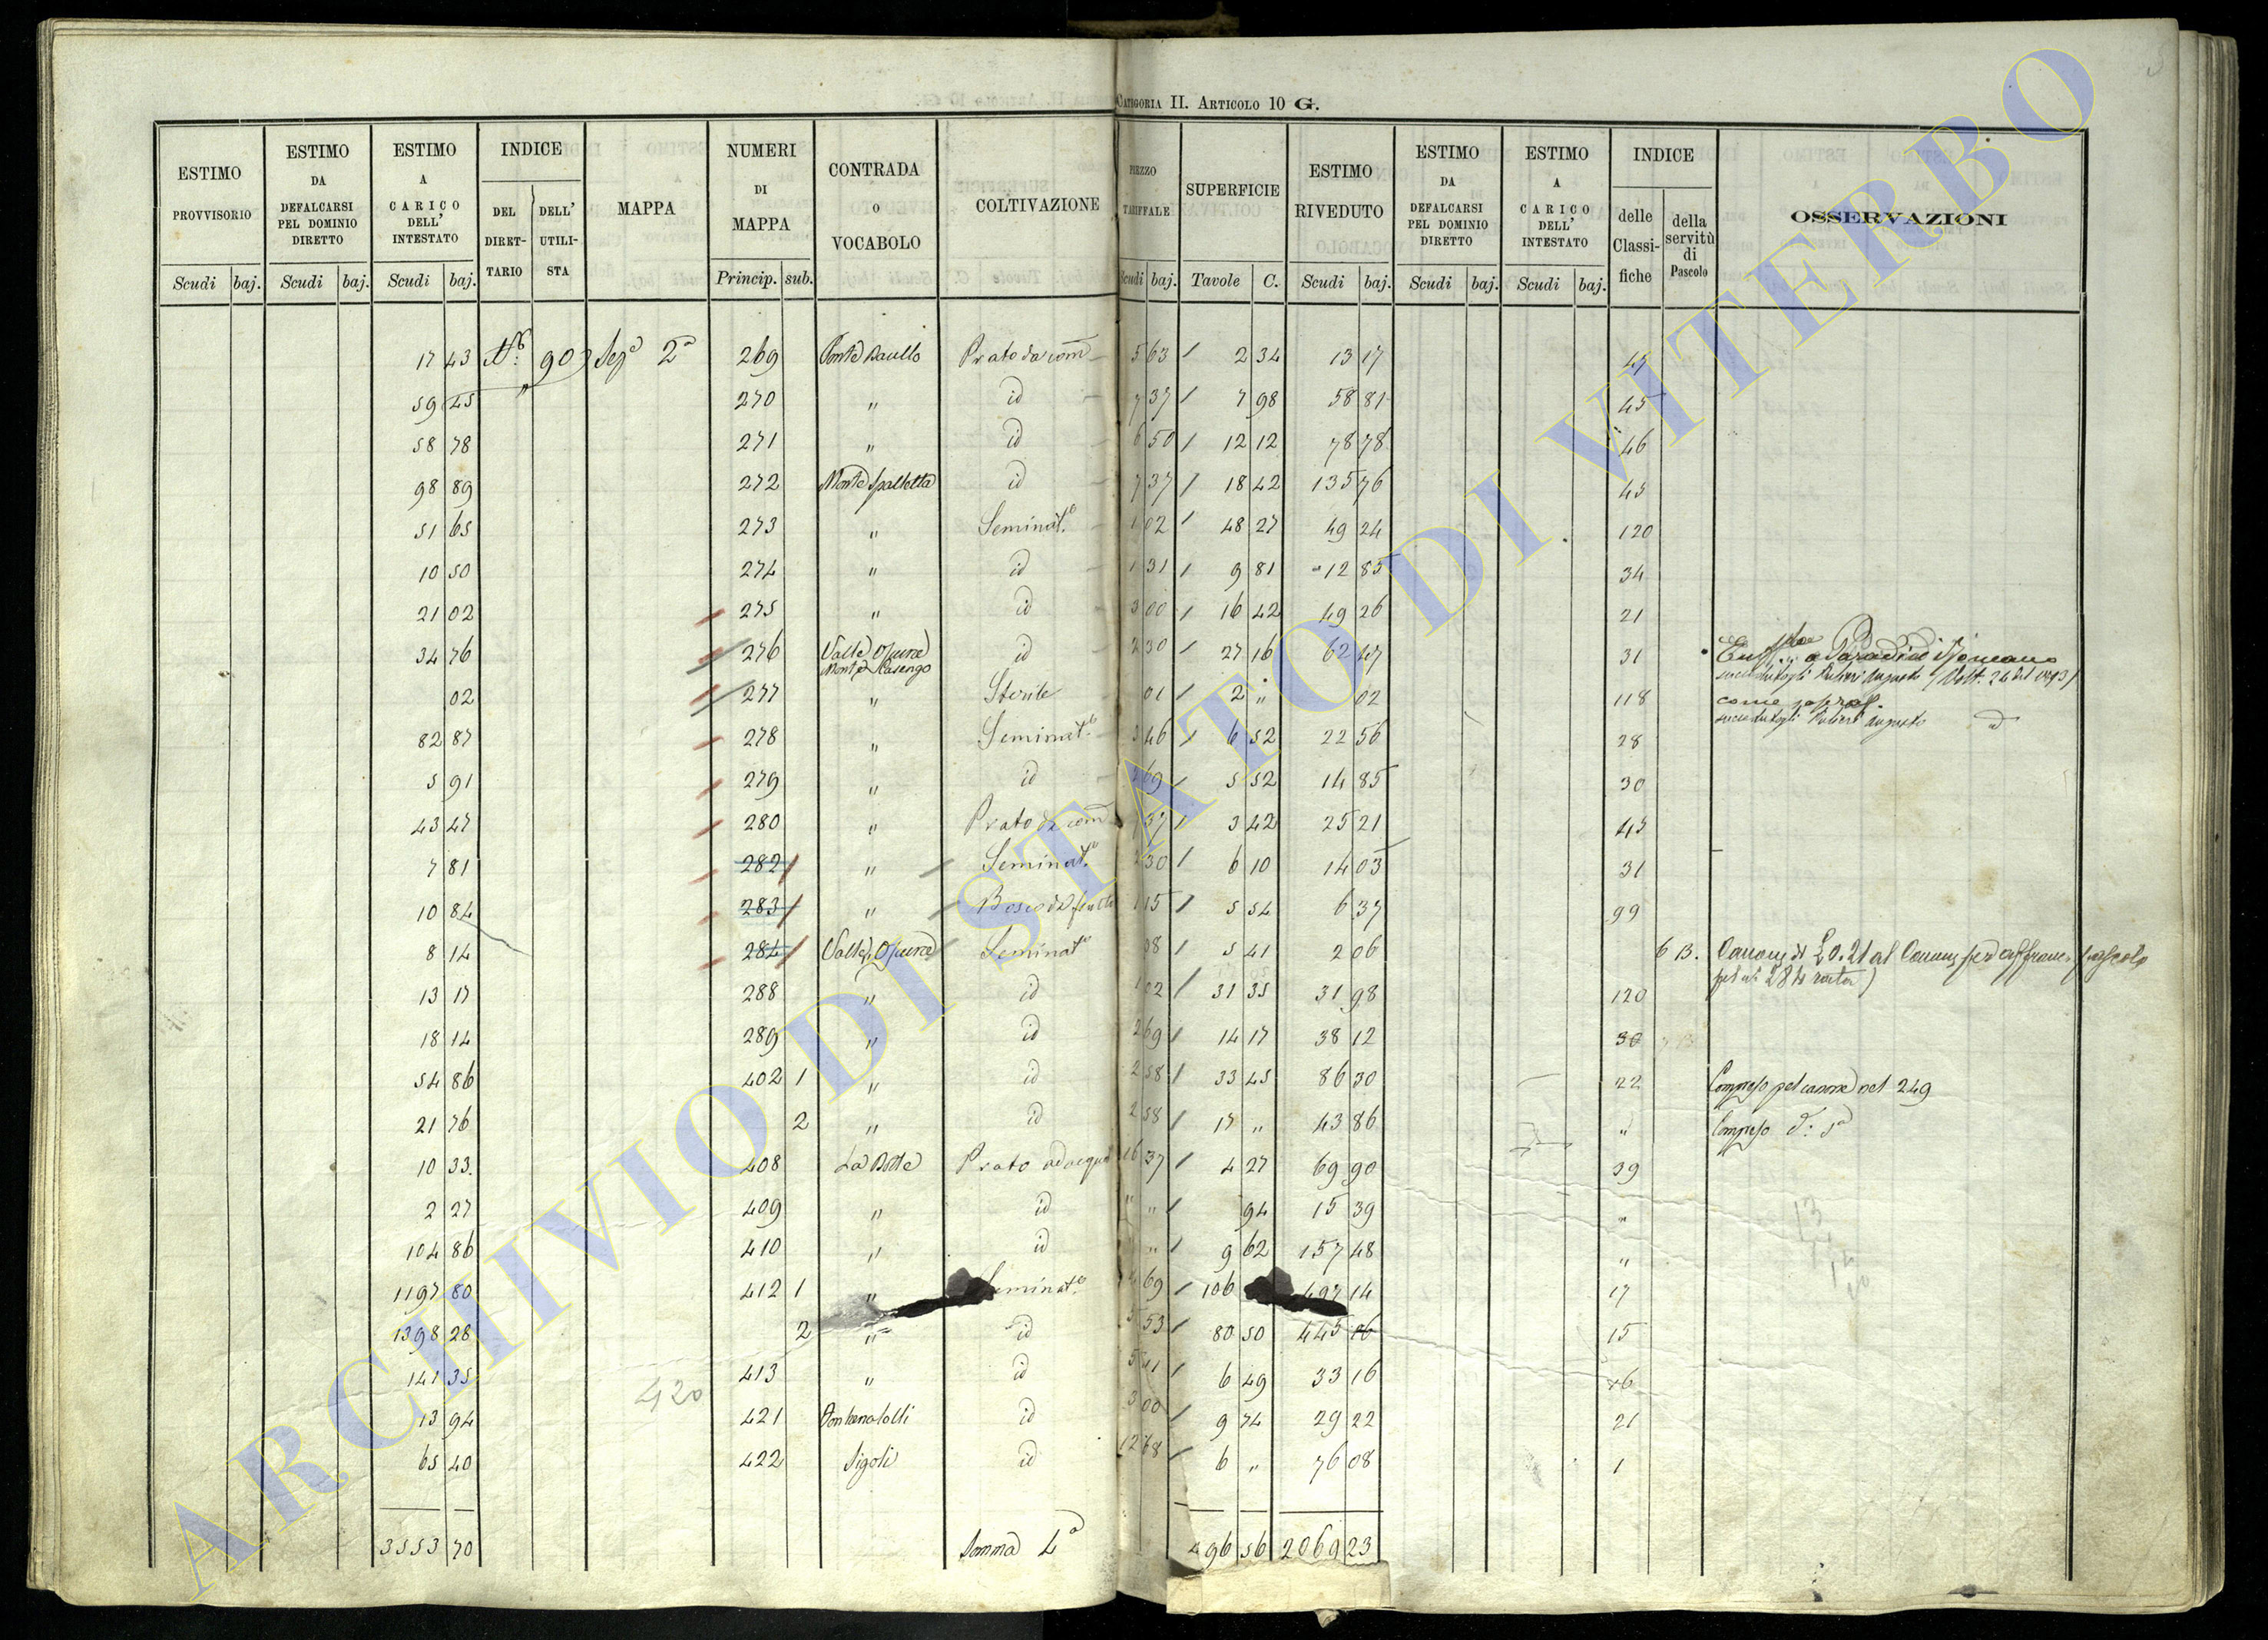 CATEGORIA II. ARTICOLO 10 G.
ESTIMO PROVVISORIO | ESTIMO DA DEFALCARSI PEL DOMINIO DIRETTO | ESTIMO A CARICO DELL' INTESTATO | INDICE | MAPPA | NUMERI DI MAPPA | CONTRADA O VOCABOLO | COLTIVAZIONE | PREZZO TARIFFALE | SUPERFICIE | ESTIMO RIVEDUTO | ESTIMO DA DEFALCARSI PEL DOMINIO DIRETTO | ESTIMO A CARICO DELL' INTESTATO | INDICE | OSSERVAZIONI
DEL DIRETTARIO | DELL' UTILISTA | delle Classifiche | della servitù di Pascolo
Scudi baj. | Scudi baj. | Scudi baj. | Princip. sub. | Scudi baj. | Tavole C. | Scudi baj. | Scudi baj. | Scudi baj.
17 43 | 903 | Sez. 2a | 269 | Prato da com | 5 63 | 2 34 | 13 17 | 45
59 45 | 270 | " | id | 7 37 | 7 98 | 58 81 | 45
58 78 | 271 | " | id | 6 50 | 12 12 | 78 78 | 46
98 89 | 272 | Monte Spalletta | id | 7 37 | 18 42 | 135 76 | 45
51 65 | 273 | " | Seminat.o | 1 02 | 48 27 | 49 24 | 120
10 50 | 274 | " | id | 1 31 | 9 81 | 12 85 | 34
21 02 | 275 | " | id | 3 00 | 16 42 | 49 26 | 21
34 76 | 276 | Valle | id | 2 30 | 27 16 | 62 47 | 31
02 | 277 | " | Sterile | 01 | 2 " | 02 | 118 | come sopra
82 87 | 278 | " | Seminat.o | 3 46 | 6 52 | 22 56 | 28
5 91 | 279 | " | id | 2 69 | 5 52 | 14 85 | 30
43 47 | 280 | " | Prato da com | 7 37 | 3 42 | 25 21 | 45
7 81 | 282 | " | Seminat.o | 2 30 | 6 10 | 14 03 | 31
10 84 | 283 | " | Bosco da frutto | 1 15 | 5 54 | 6 37 | 99
8 14 | 284 | Valle | Seminat.o | 38 | 5 41 | 2 06 | 6 B.
13 17 | 288 | " | id | 1 02 | 31 35 | 31 98 | 120
18 14 | 289 | " | id | 2 69 | 14 17 | 38 12 | 30
54 86 | 402 1 | " | id | 2 58 | 33 45 | 86 30 | 22 | Compreso pel canone nel 249
21 76 | 2 | " | id | 2 58 | 17 " | 43 86 | " | Compreso
10 33 | 408 | La Botte | Prato adacquat | 16 37 | 4 27 | 69 90 | 39
2 27 | 409 | " | id | " " | 94 | 15 39 | "
104 86 | 410 | " | id | " " | 9 62 | 157 48 | "
1197 80 | 412 1 | " | Seminat.o | 4 69 | 106 | 497 14 | 17
1398 28 | 2 | " | id | 5 53 | 80 50 | 445 16 | 15
141 35 | 413 | " | id | 5 11 | 6 49 | 33 16 | 16
420
13 94 | 421 | id | 3 00 | 9 74 | 29 22 | 21
65 40 | 422 | Sigoli | id | 12 68 | 6 " | 76 08 | 1
3553 70 | Somma 4a | 496 56 | 2069 23
ARCHIVIO DI STATO DI VITERBO